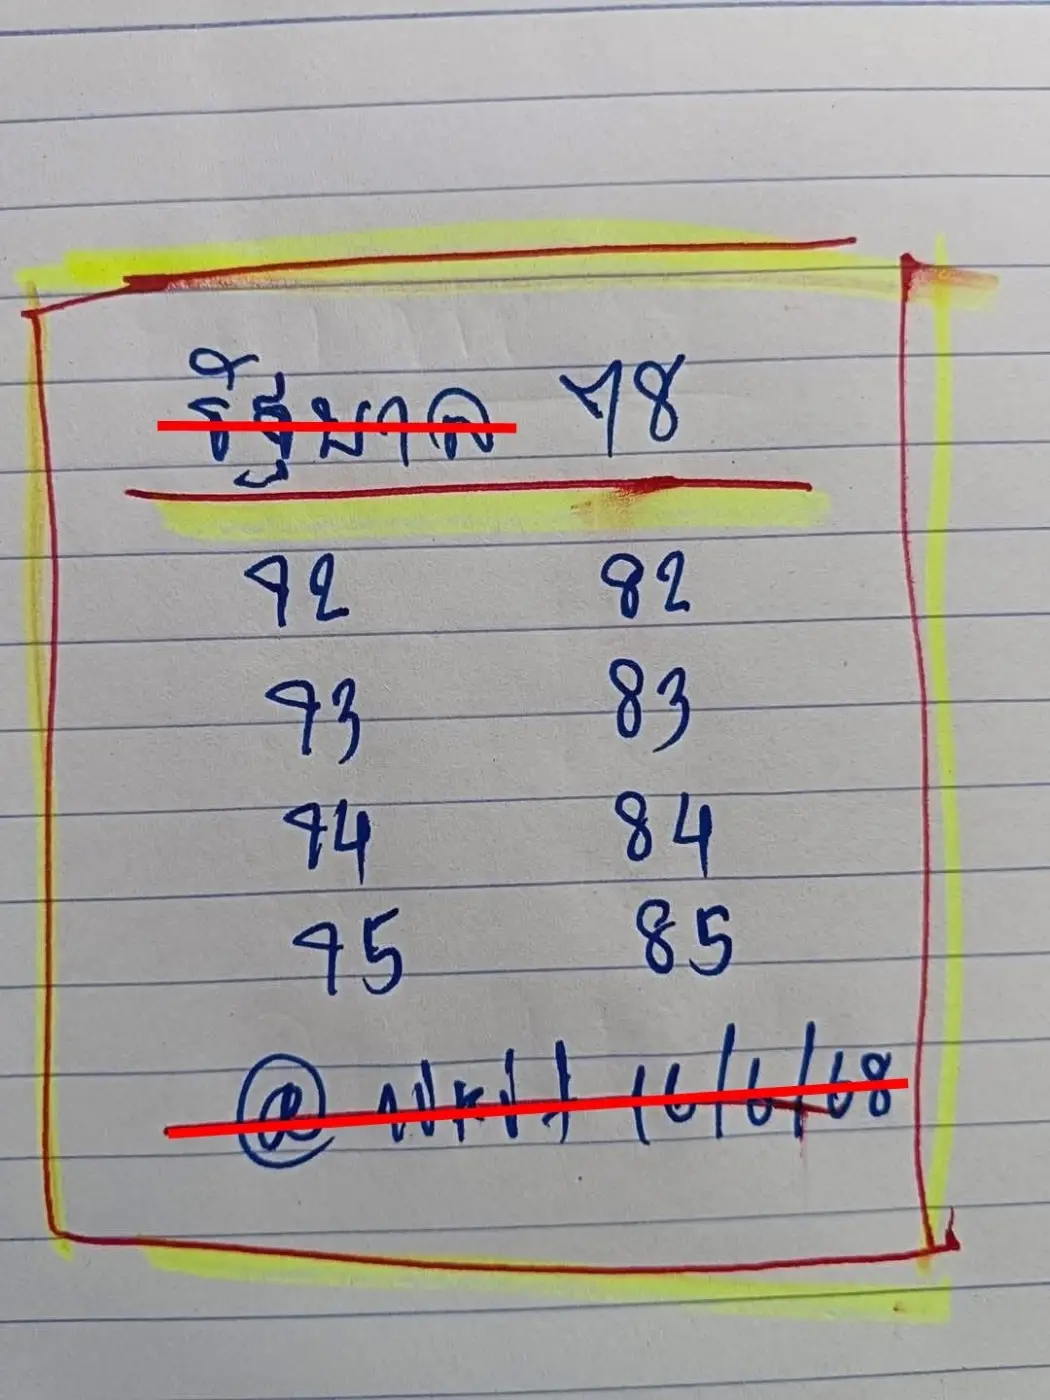 รัฐบาล 78
72 82
73 83
74 84
75 85
@ 16/6/68